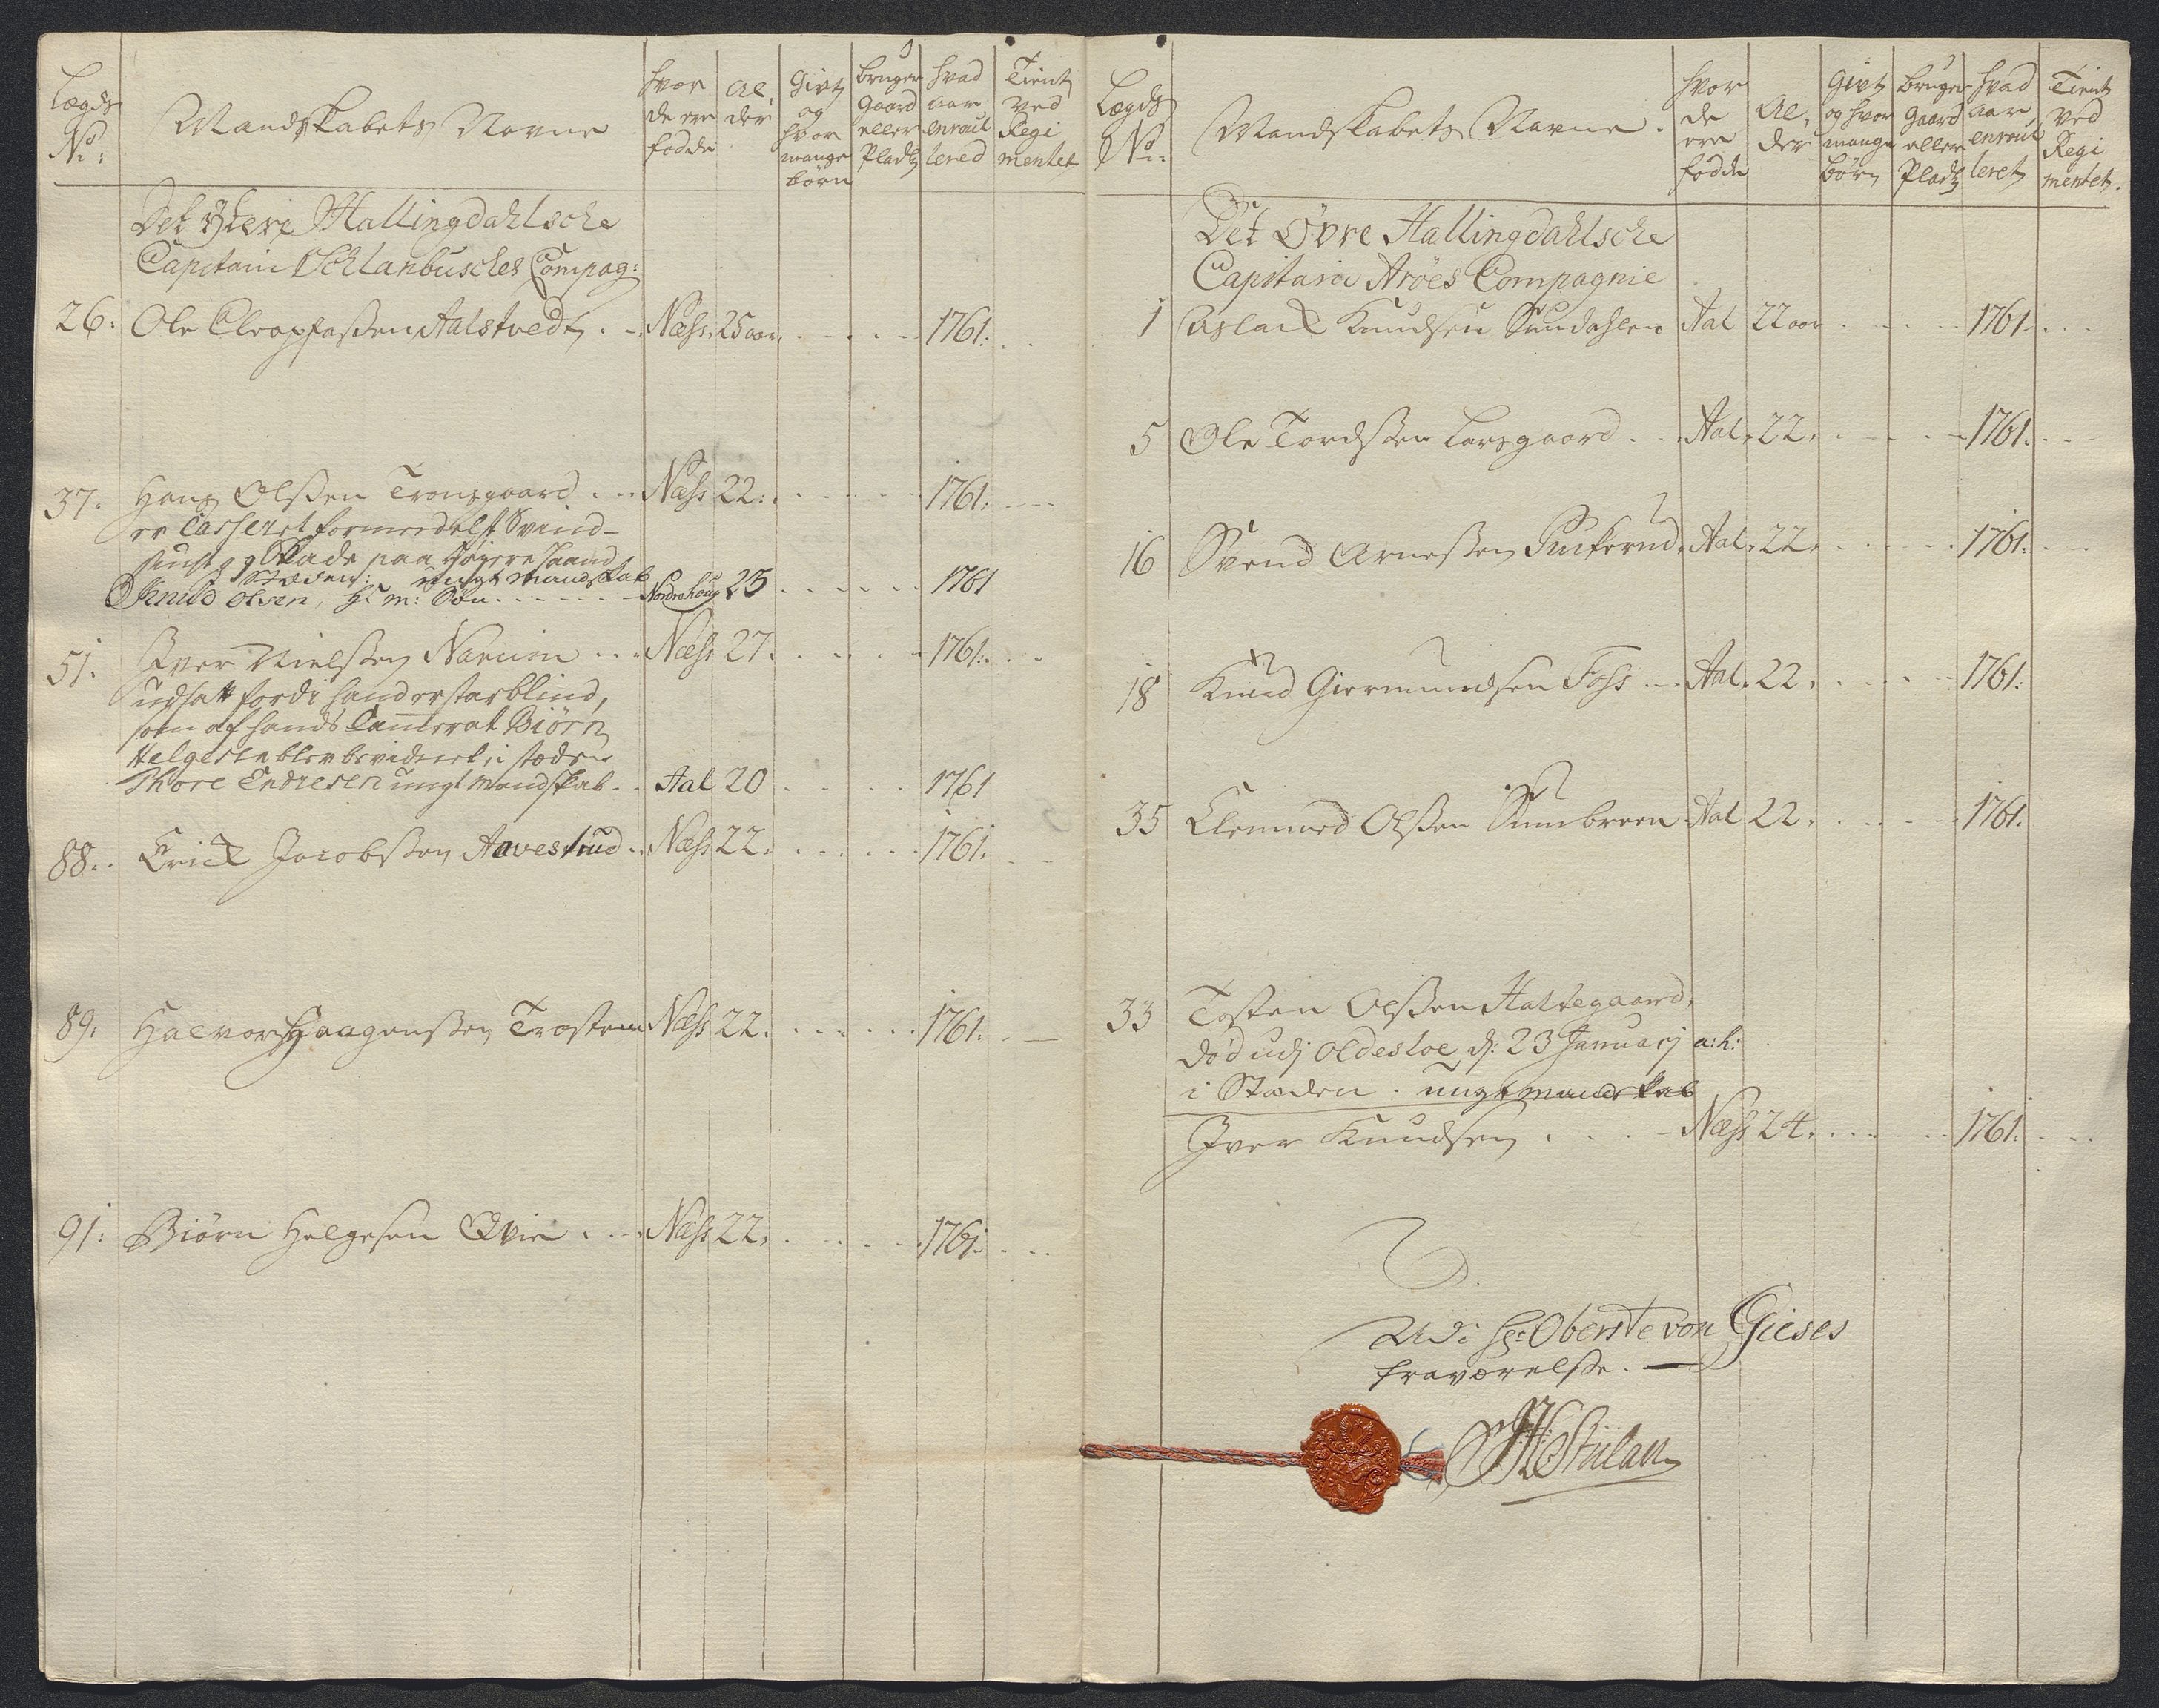 Lægds No:
Mandskabets Navne
hvor de ere fødde
Al, der
Givt og hvor mange börn
bruger Gaard eller Pladz
hvad aar enroul lered
Tient ved Regi mentet
Det Ytere Hallingdahlsche
Capitain Schlanbusches Compag:
26: Ole Cleopfaßen Aalstvedt . . Næss. 25 aar. . . . . . 1761: . .
37. Hans Olßen Tronsgaard . . . Næss 22: . . . . . 1761: . . .
er Casseret formedelst Svind-
suht og Skade paa Høyere Haand
i Stæden: ungt Mandskab
Knud Olsen, . . . . . . Nordrehoug 23 . . . . . 1761
51. Iver Nielßen Narum . . . Næss 27. . . . . . 1761: . .
udsatt fordi hand er starblind,
som af hands Camerat Biörn
Helgesen blev bevidnet, i stæden
Thore Endresen ungt Mandskab . . Aal 20 . . . . 1761
88. . Erick Jacobßen Aavestrud . . Næss 22. . . . . . 1761. . .
89. Halvor Haagenßen Trostem Næss 22. . . . . . 1761. . —
91: Biörn Helgesen Qvie . . . Næss 22, . . . . . 1761: . . .
Lægds No:
Mandskabets Navne .
hvor de ere födde
Al, der
Givt og hvor mange börn
bruger Gaard eller Pladz
hvad aar enroul leret
Tient ved Regi mentet.
Det Øvre Hallingdahlsche
Capitain Aröes Compagnie
1 Aslack Knudsen Sundahlen Aal 22 aar . . . . . 1761. . . .
5 Ole Tordßen Larsgaard . . . Aal, 22, . . . . 1761. . . .
16 Svend Arneßen . Aal, 22, . . . . . 1761. . . .
18 Knud Giermundsen Foss . . . Aal. 22, . . . . 1761:
35 Clemmed Olßen Sunbreen Aal 22. . . . . . 1761.
33 Tosten Olßen Haltegaard,
död udj Oldesloe d: 23 Januarj a:h:
i Stæden . ungt Mandskab
Iver Knudsen . . . . Næss 24. . . . . . 1761: . . .
Udi Hr: Oberste von Gieses
fraværelse. —